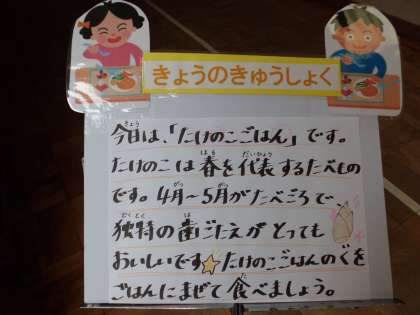 きょうのきゅうしょく
今日は、「たけのこごはん」です。
たけのこは春を代表するたべもの
です。4月～5月がたべごろで
独特の歯ごたえがとっても
おいしいです☆たけのこごはんのぐを
ごはんにまぜて食べましょう。